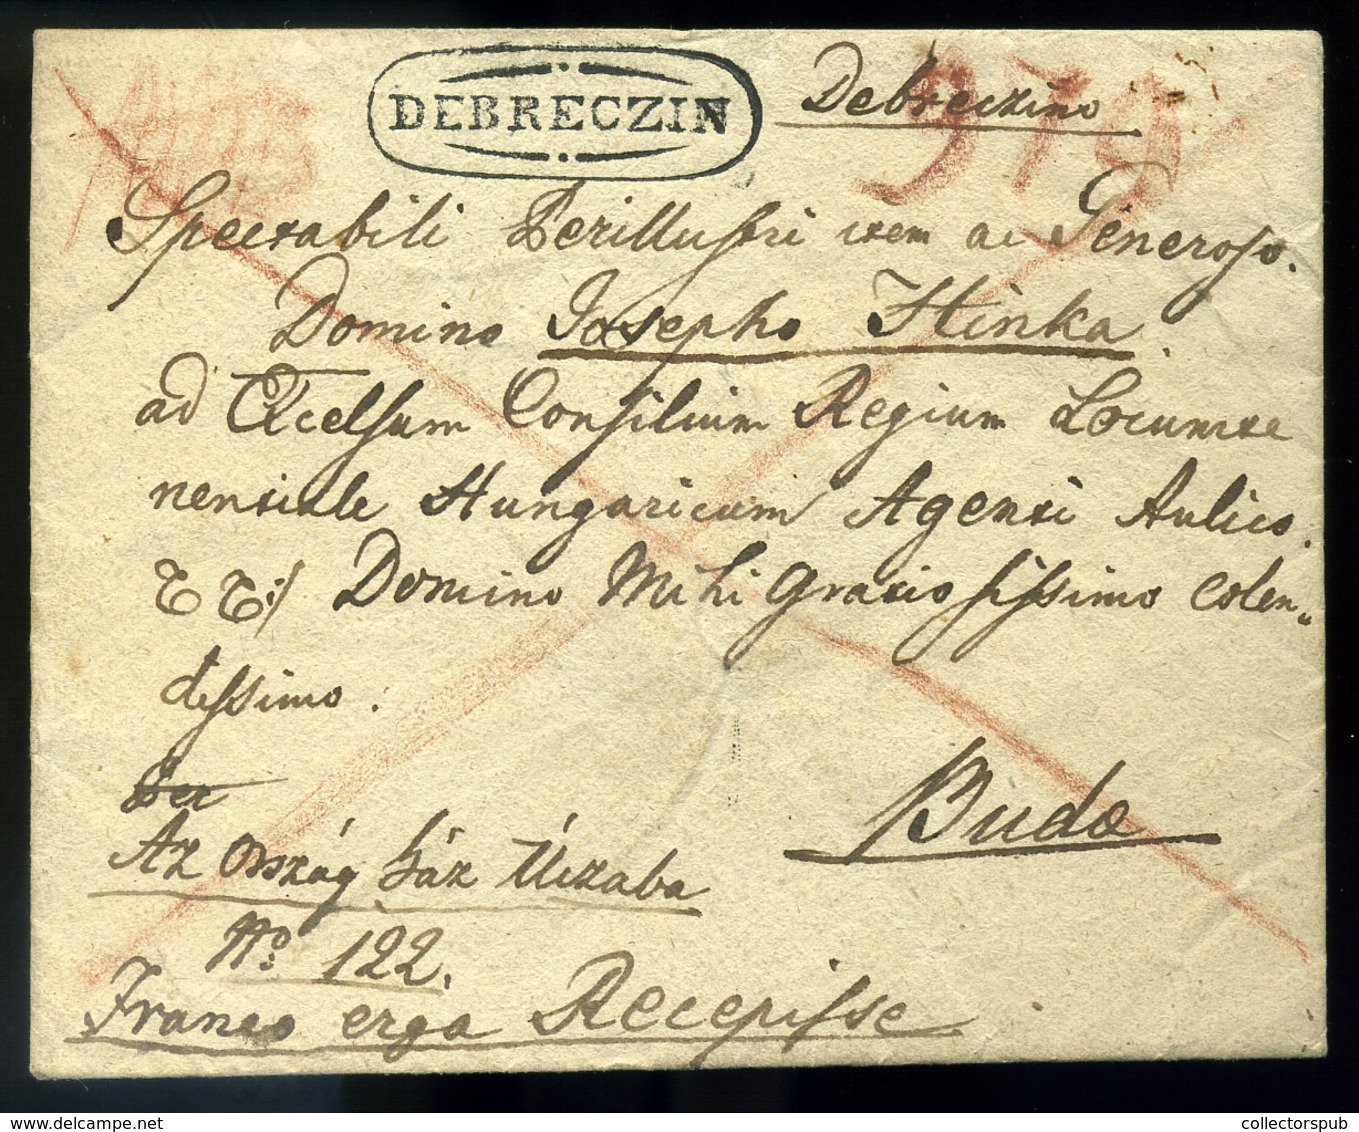 DEBRECZIN
Debreczino
379
Spectabili Perillustri item ac Generoso.
Domino Josepho Hinka.
ad Excelsum Consilium Regium Locumte
nentiale Hungaricum Agenti Aulico.
Domino Mihi Gratiosissimo Colen„
dissimo.
Per
Buda
Az Ország ház Utzaba
No. 122.
Franco erga Recepisse
collectorspub